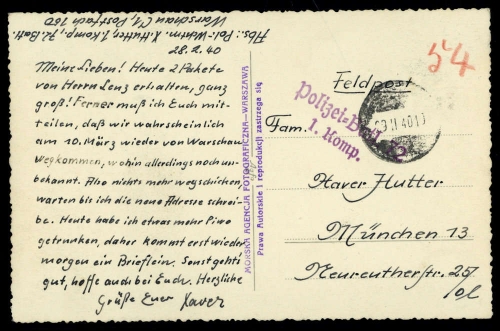 Abs: Pol.-Wchtm. X. Hutter, 1. Komp., 72. Batl.
Warschau C1, Postfach 180
28.2.40
Meine Lieben! Heute 2 Pakete
von Herrn Lenz erhalten, ganz
groß! Ferner muß ich Euch mit-
teilen, daß wir wahrscheinlich
am 10. März wieder von Warschau
wegkommen, wohin allerdings noch un-
bekannt. Also nichts mehr wegschicken,
warten bis ich die neue Adresse schrei-
be. Heute habe ich etwas mehr Piwo
getrunken, daher kommt erst wieder
morgen ein Brieflein. Sonst gehts
gut, hoffe auch bei Euch. Herzliche
Grüße Euer Xaver
MORSKA AGENCJA FOTOGRAFICZNA—WARSZAWA
Prawa Autorskie i reprodukcji zastrzega się
54
Feldpost
Polizei-Batl.
1. Komp.
Fam.
Xaver Hutter
München 13
Neureutherstr. 25/
ol